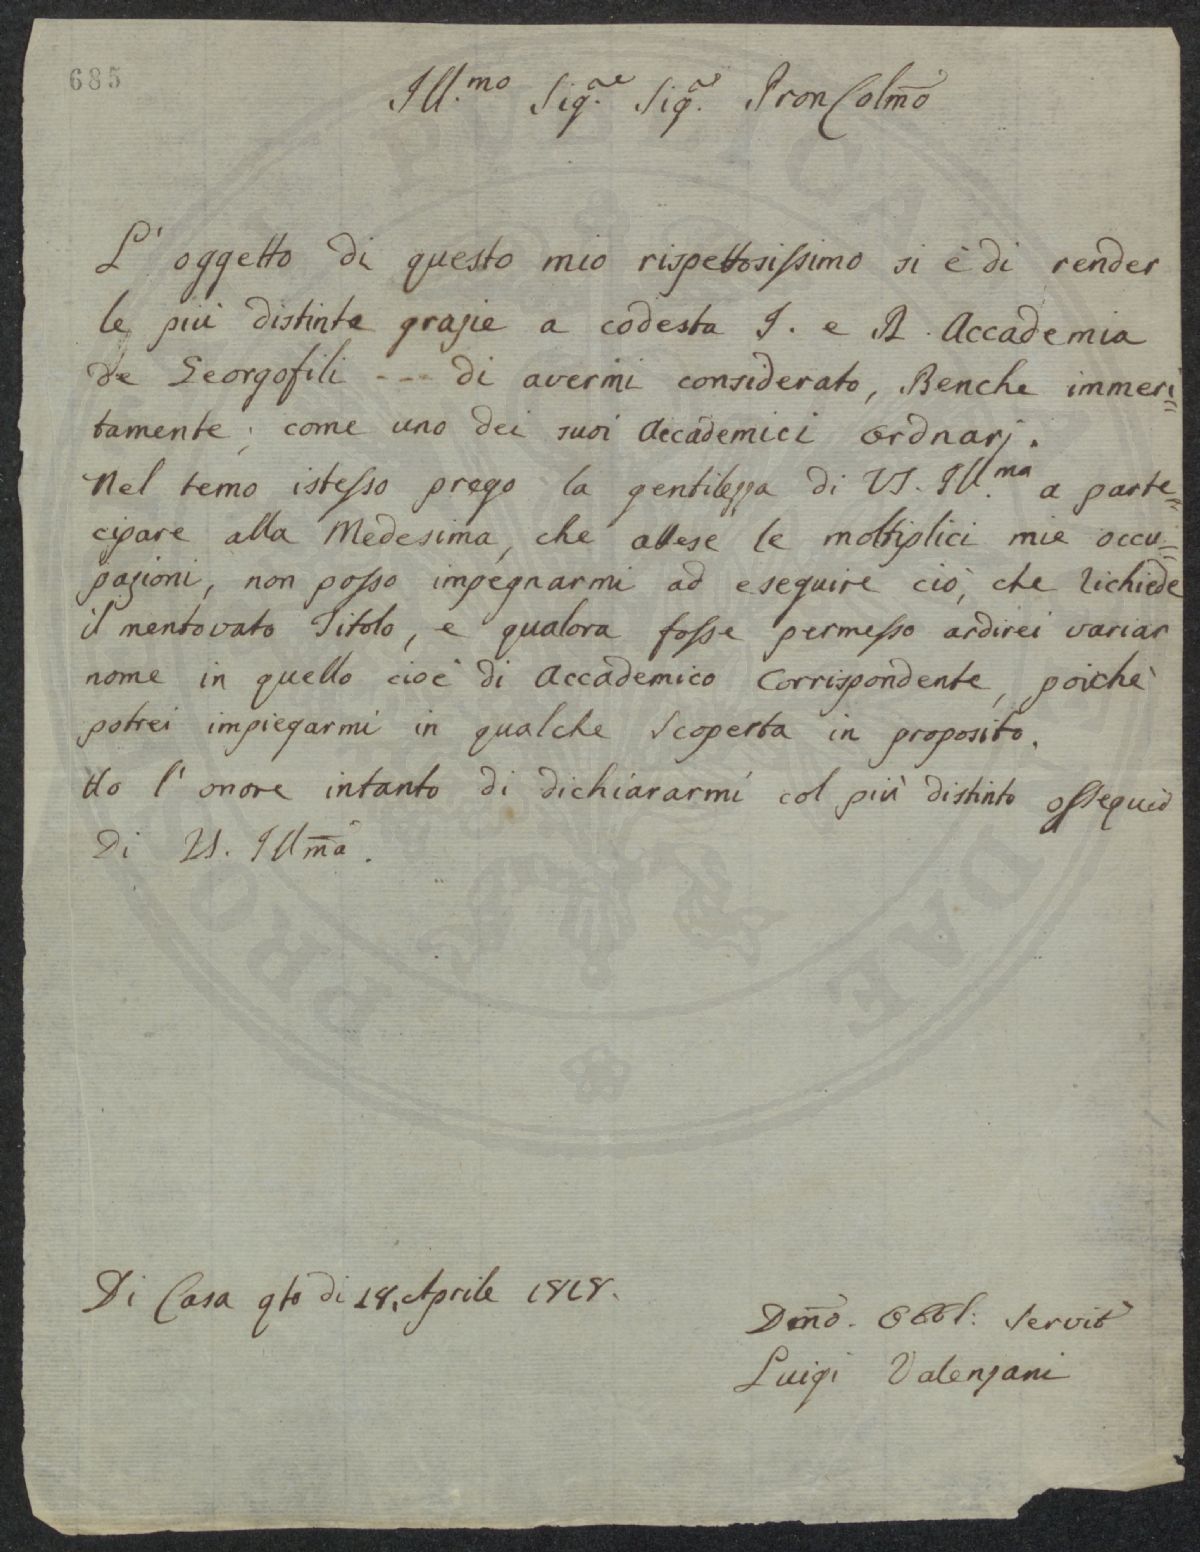 685
Ill.mo Sig.re Sig.re Pron Colmo
L' oggetto di questo mio rispettosissimo si è di render
le più distinte grazie a codesta I. e R. Accademia
de Georgofili --- di avermi considerato, Benche immeri=
tamente, come uno dei suoi Accademici Ordnarj.
Nel temo istesso prego la gentilezza di VS. Ill.ma a parte=
cipare alla Medesima, che attese le moltiplici mie occu=
pazioni, non posso impegnarmi ad eseguire ciò, che richiede
il mentovato Titolo, e qualora fosse permesso ardirei variar
nome in quello cioè di Accademico Corrispondente, poichè
potrei impiegarmi in qualche Scoperta in proposito.
Ho l' onore intanto di dichiararmi col più distinto ossequio
Di VS. Illma.
Di Casa qto di 18. Aprile 1818.
Dmo. Obbl: Servit
Luigi Valenzani
PRO PUBLICAE DAE